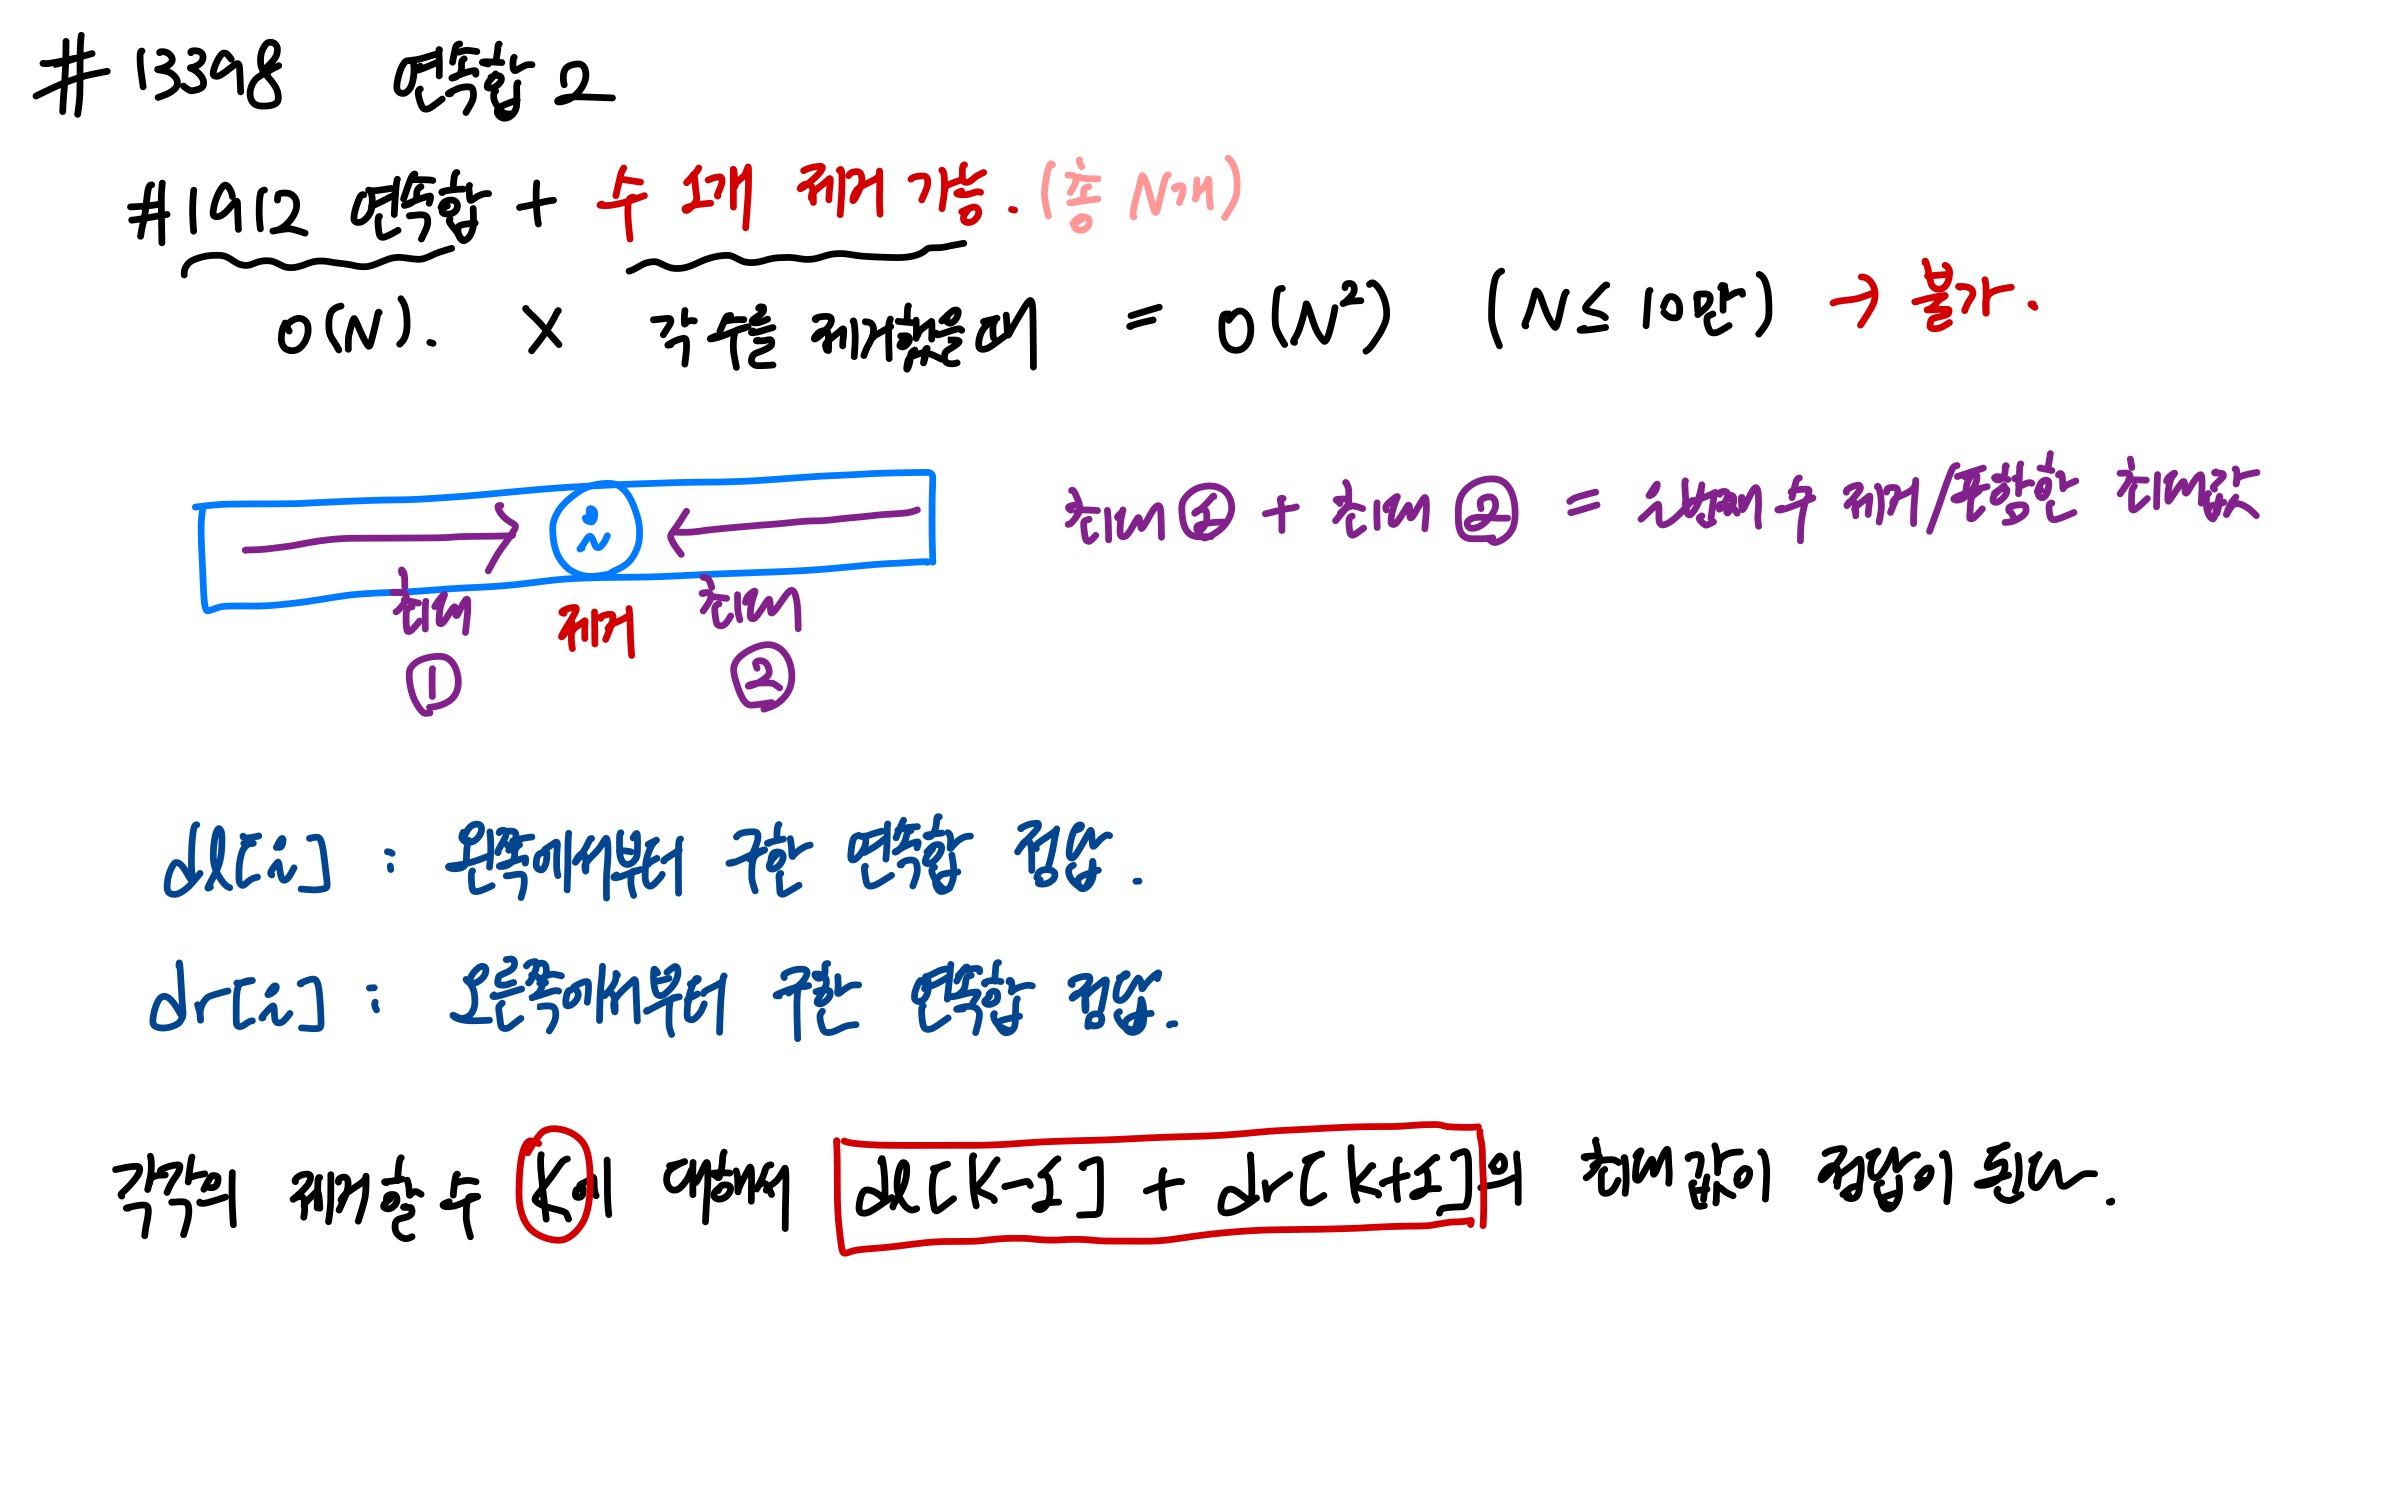 #13398 연속합 2
#1912 연속합 + 수 1개 제거 가능. (총 N개)
O(N). × 각 수를 제거했을 때 = O(N²) (N ≤ 10만) → 불가.
최대 ① + 최대 ② = i번째 수 제거 / 연속합 최대값
i
최대 제거 최대
① ②
dl[i] : 왼쪽에서부터 구한 연속합 정답.
dr[i] : 오른쪽에서부터 구한 연속합 정답.
각각의 제거할 수 k에 대해 dl[k-1] + dr[k+1]의 최대값이 정답이 된다.